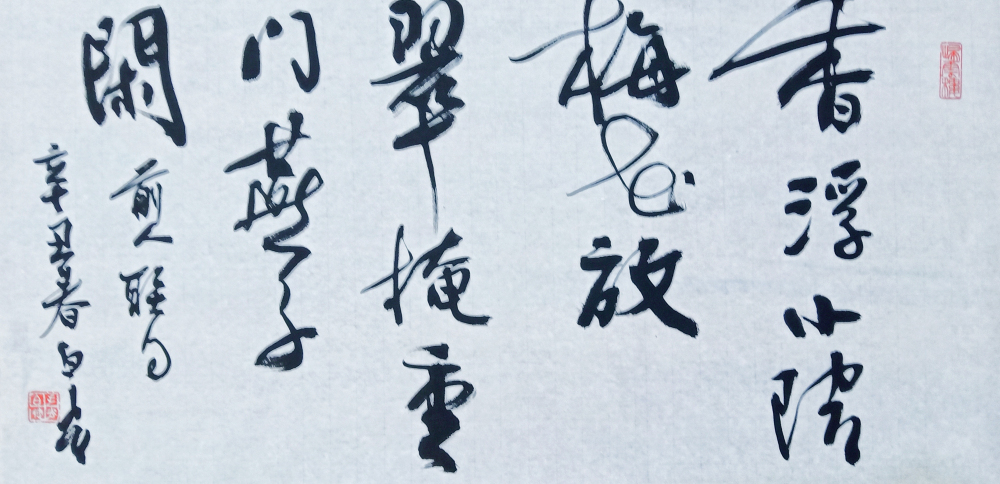 香浮小院
梅花放
翠掩重
门燕子
閑
前人联句
辛丑春白